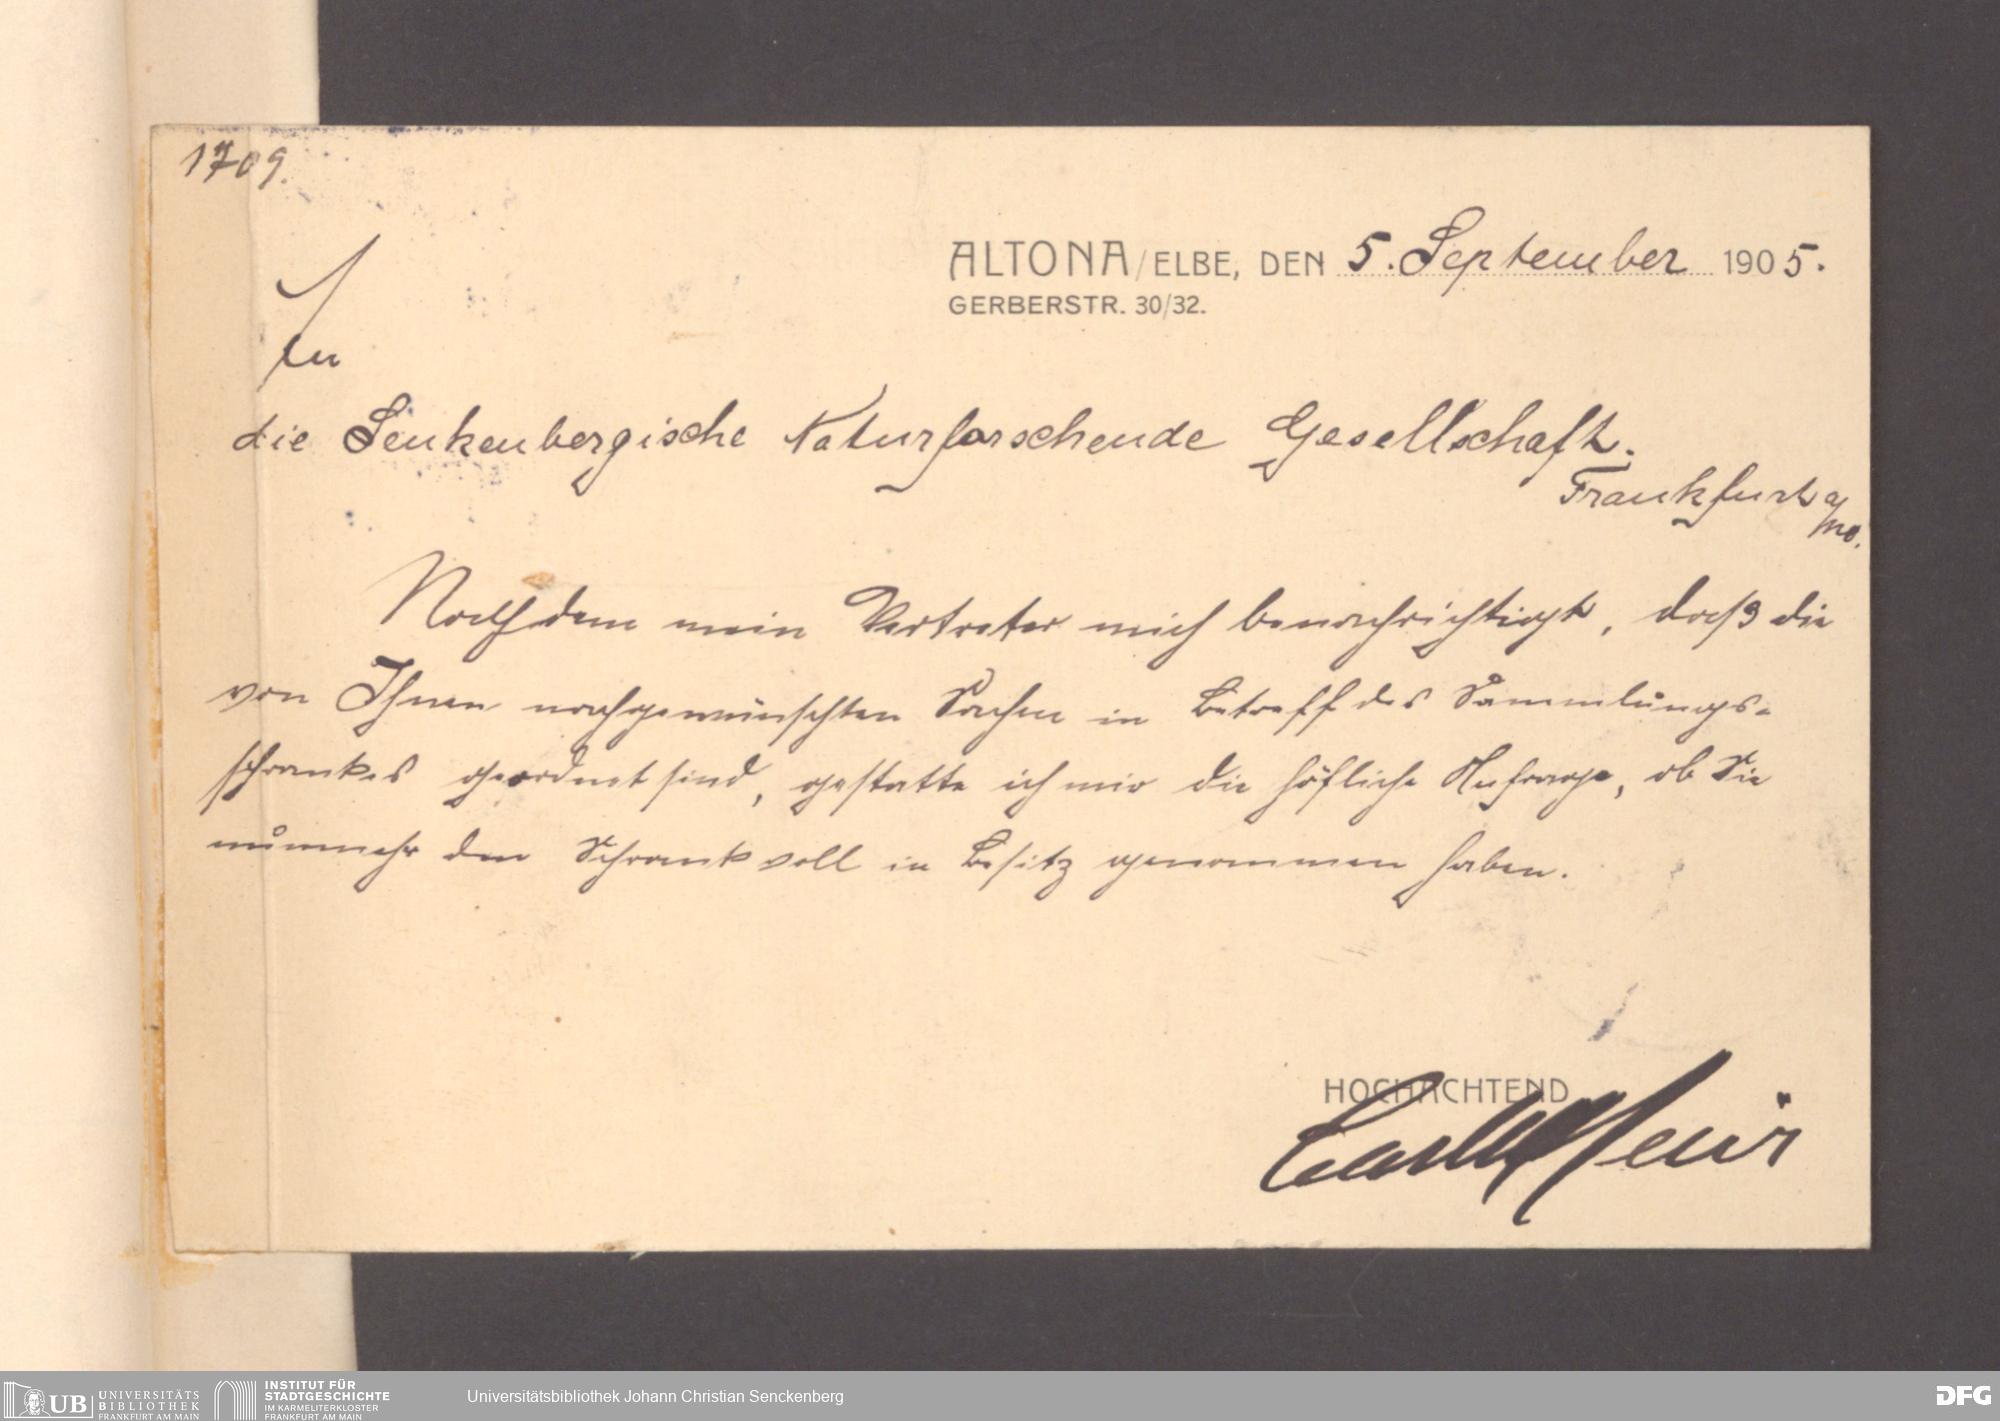 1709.
ALTONA/ELBE, DEN 5. September 1905.
GERBERSTR. 30/32.
An
die Senkenbergische Naturforschende Gesellschaft.
Frankfurt a/M.
Nachdem mein Vertreter mich benachrichtigt, daß die
von Ihnen nachgewünschten Sachen in Betreff des Sammlungs-
schrankes geordnet sind, gestatte ich mir die höfliche Anfrage, ob Sie
nunmehr den Schrank voll in Besitz genommen haben.
HOCHACHTEND
Carl
UB UNIVERSITÄTS
BIBLIOTHEK
FRANKFURT AM MAIN
INSTITUT FÜR
STADTGESCHICHTE
IM KARMELITERKLOSTER
FRANKFURT AM MAIN
Universitätsbibliothek Johann Christian Senckenberg
DFG